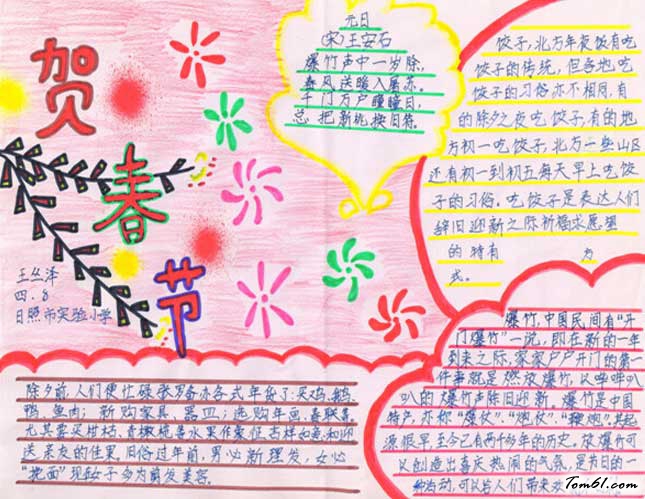 贺春节
王丛泽
四.8
日照市实验小学
元日
(宋)王安石
爆竹声中一岁除,
春风送暖入屠苏。
千门万户曈曈日,
总把新桃换旧符。
饺子,北方年夜饭有吃
饺子的传统,但各地吃
饺子的习俗亦不相同,有
的除夕之夜吃饺子,有的地
方初一吃饺子,北方一些山区
还有初一到初五每天早上吃饺
子的习俗。吃饺子是表达人们
辞旧迎新之际祈福求愿望
的特有 方
式。
除夕前,人们便忙碌张罗备办各式年货了:买鸡、鹅、
鸭、鱼肉;新购家具、器皿;选购年画、春联等,
尤其要买柑桔、青橄榄等水果作象征吉祥如意和迎
送亲友的佳果。旧俗过年前,男必新理发,女必
现在女子多为前发美容。
爆竹,中国民间有"开
门爆竹"一说,即在新的一年
到来之际,家家户户开门的第一
件事就是燃放爆竹,以哔哔叭
叭的爆竹声除旧迎新。爆竹是中国
特产,亦称"爆仗"、"炮仗"、"鞭炮"。其起
源很早,至今已有两千多年的历史。放爆竹可
以创造出喜庆热闹的气氛,是节日的一
种活动,可以给人们带来欢
Tom61.com